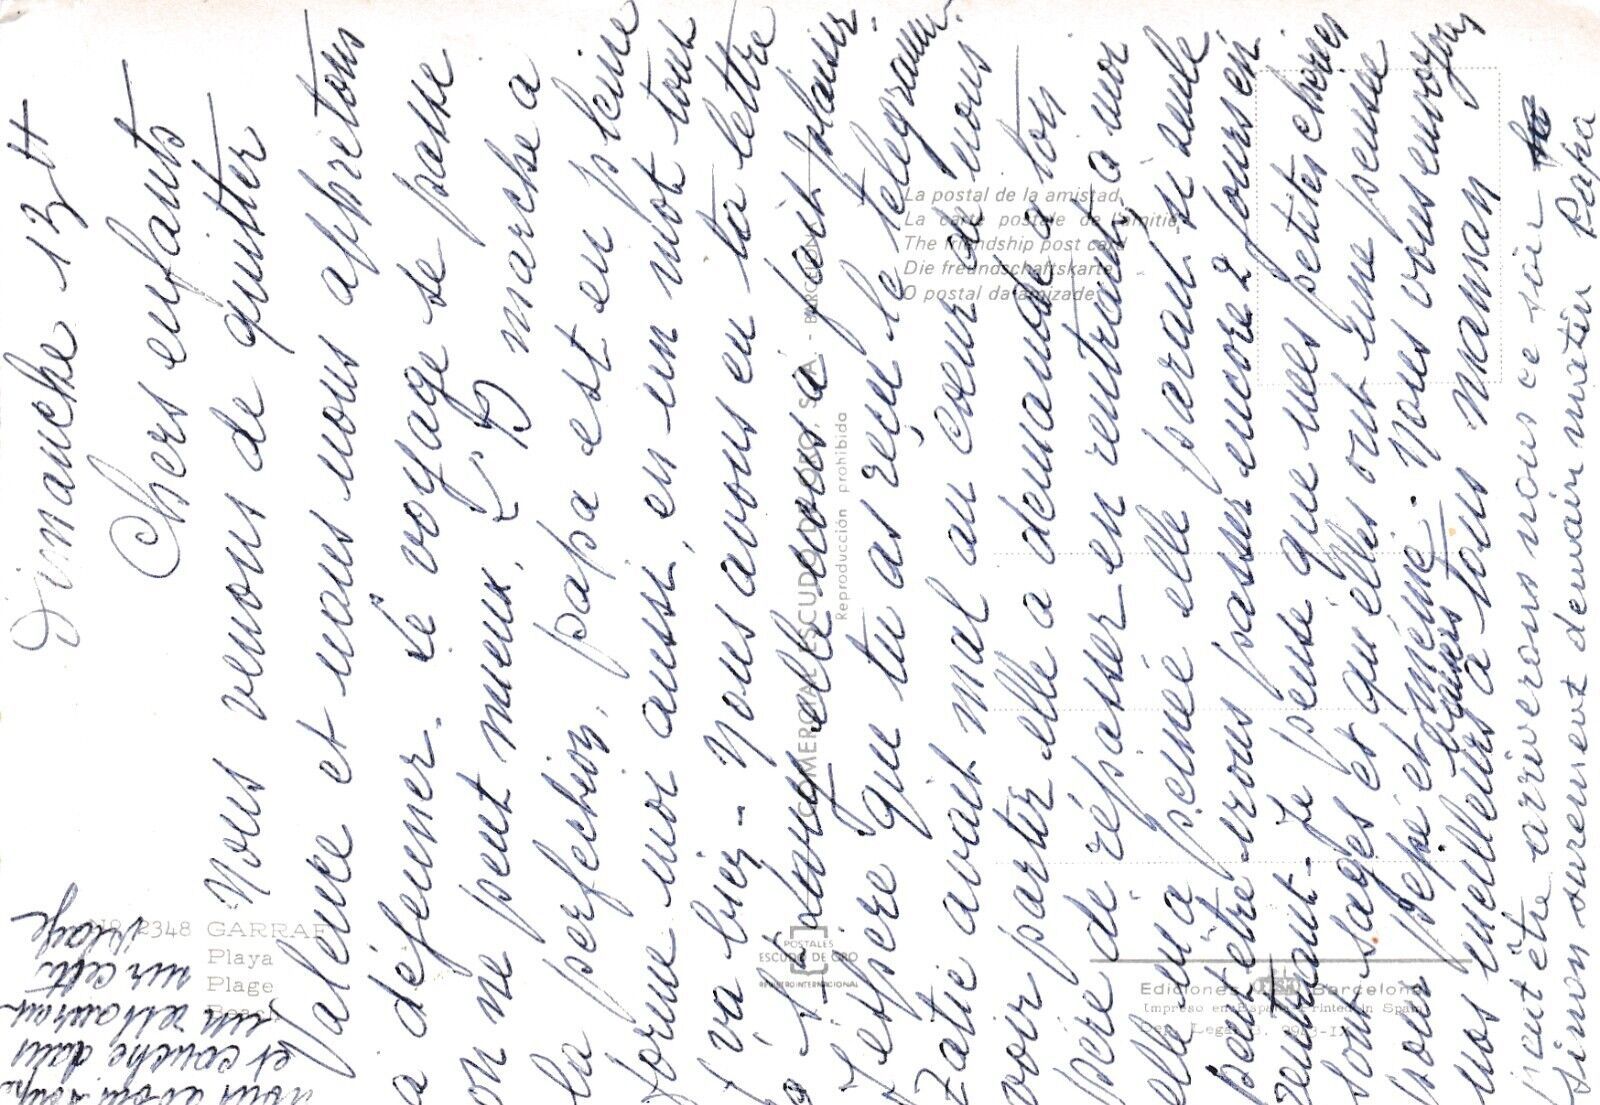 Dimanche 13 H
Chers enfants
Nous venons de quitter
Valence et nous nous appretons
a déjeuner. Le voyage se passe
on ne peut mieux, marche a
la perfection, papa est en pleine
forme moi aussi, en un mot tout
va bien - Nous avons eu ta lettre
a elle nous a fait plaisir.
J'espère que tu as reçu le telegramme.
Zatie avait mal au coeur de nous
voir partir elle a demandé a ton
père de répasser en rentrant, a moi
elle m'a peinée elle parait si seule
peut être irons passer encore 2 jours en
rentrant - Je pense que mes petites cheries
sont sages et qu'elles ont une pensée
pour pépé et mémé. Nous vous envoyons
nos meilleurs baisers a tous maman
peut être ariverons nous ce soir
sinon surement demain matin Papa
nous avons
et couché dans
un restaurant
sur cette
plage
Nº 2348 GARRAF
Playa
Plage
Beach
POSTALES
ESCUDO DE ORO
REGISTRO INTERNACIONAL
COMERCIAL ESCUDO DE ORO, S.A. - BARCELONA
Reproducción prohibida
La postal de la amistad
La carte postale de l'amitie
The friendship post card
Die freundschaftskarte
O postal da amizade
Ediciones Barcelona
Impreso en España - Printed in Spain
Dep. Legal B.